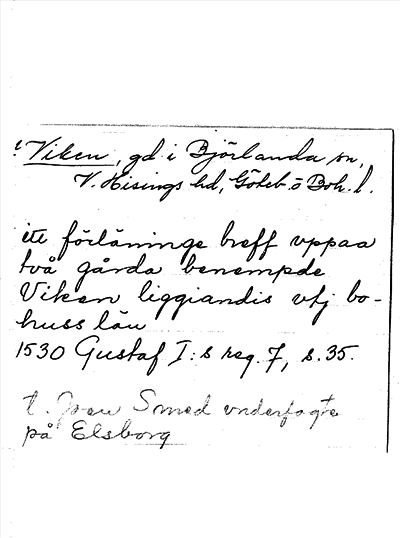 ! Viken, gd i Björlanda sn,
V. Hisings hd, Göteb. o Boh. l.
itt förläninge breff vppaa
två gårda benempde
Viken liggiandis vtj bo-
huss län
1530 Gustaf I:s reg. 7, s. 35.
t. Smed vnderfogte
på Elsborg